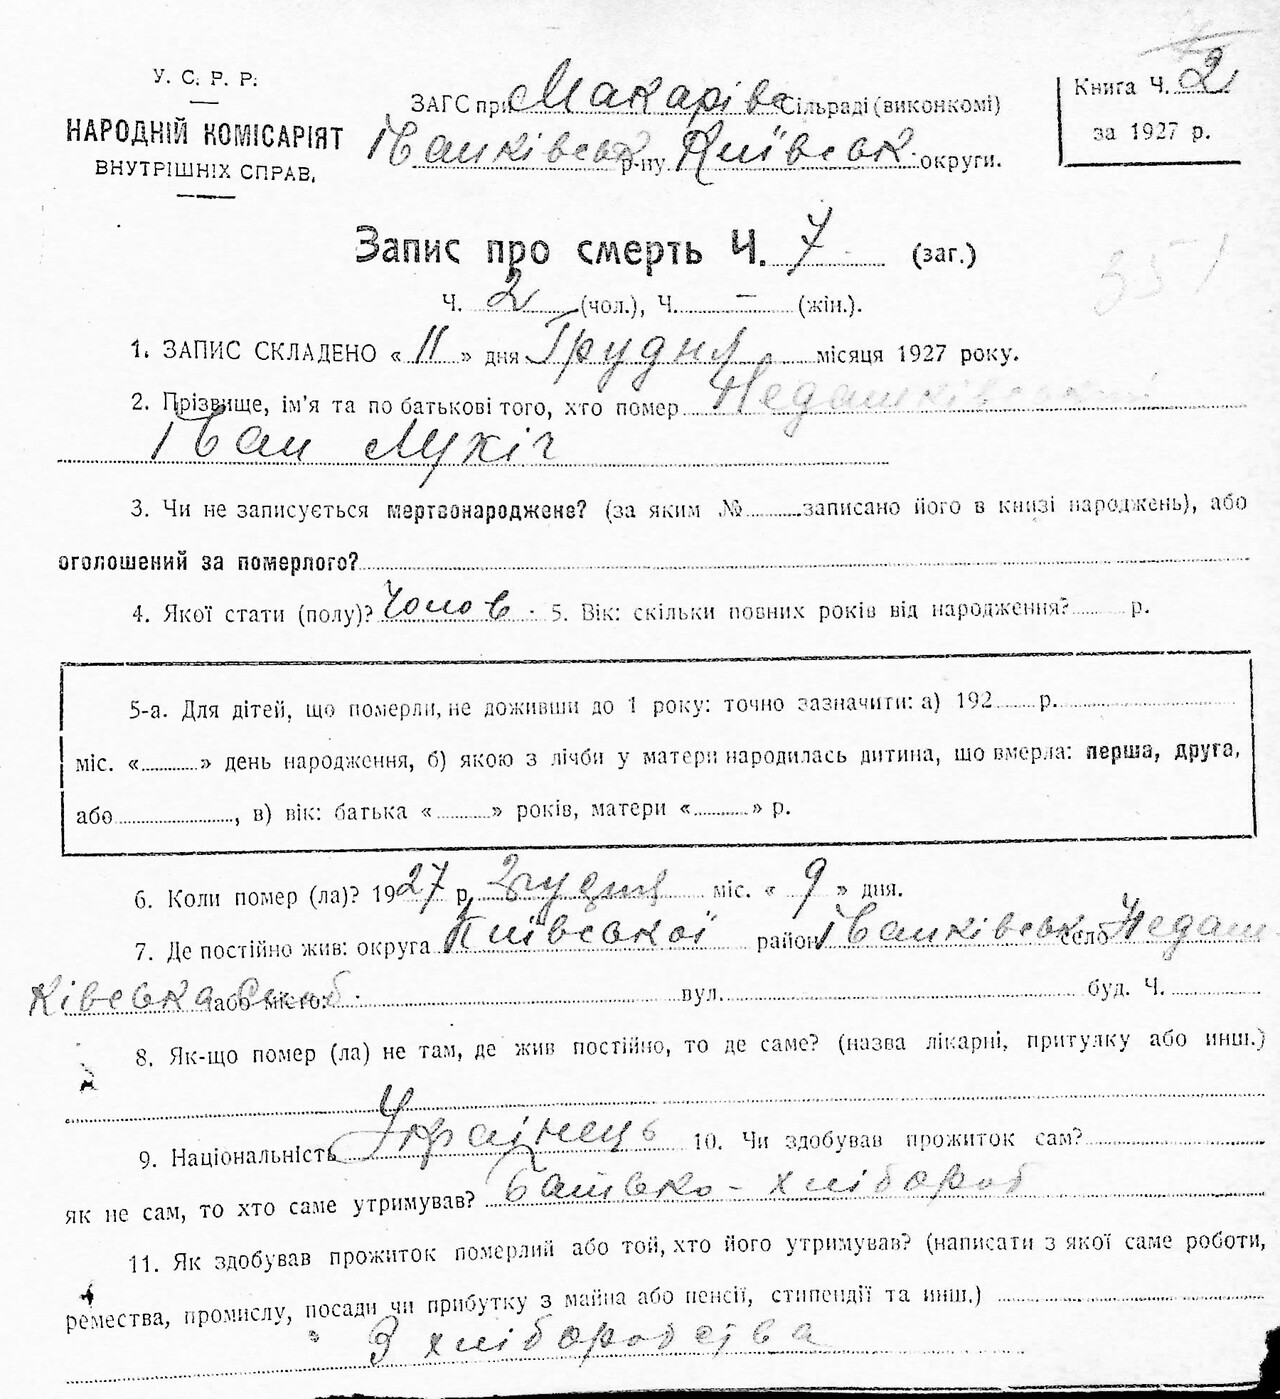 У. С. Р. Р.
НАРОДНІЙ КОМІСАРІЯТ
ВНУТРІШНІХ СПРАВ.
ЗАГС при Макарівс Сільраді (виконкомі)
Іванківськ р-ну Київськ округи.
Книга Ч. 2
за 1927 р.
351
Запис про смерть Ч. 7 (заг.)
Ч. 2 (чол.), Ч. — (жін.).
1. ЗАПИС СКЛАДЕНО « 11 » дня Грудня місяця 1927 року.
2. Прізвище, ім'я та по батькові того, хто помер Недашківський
Іван Лукіч
3. Чи не записується мертвонароджене? (за яким № записано його в книзі народжень), або
оголошений за померлого?
4. Якої стати (полу)? Чолов. 5. Вік: скільки повних років від народження? р.
5-а. Для дітей, що померли, не доживши до 1 року: точно зазначити: а) 192 р.
міс. « » день народження, б) якою з лічби у матери народилась дитина, що вмерла: перша, друга,
або , в) вік: батька « » років, матери « » р.
6. Коли помер (ла)? 1927 р. Грудня міс. « 9 » дня.
7. Де постійно жив: округа Київської район Іванківськ село Недаш-
ківська Слоб. або місто: вул. буд. Ч.
8. Як-що помер (ла) не там, де жив постійно, то де саме? (назва лікарні, притулку або инш.)
9. Національність Українець 10. Чи здобував прожиток сам?
як не сам, то хто саме утримував? Батько - хлібороб
11. Як здобував прожиток померлий або той, хто його утримував? (написати з якої саме роботи,
ремества, промислу, посади чи прибутку з майна або пенсії, стипендії та инш.)
З хліборобства